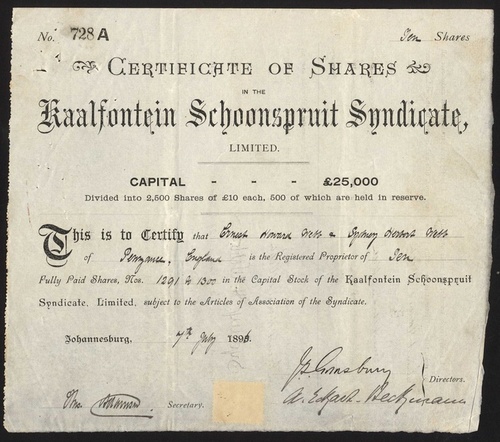 No. 728 A Ten Shares
CERTIFICATE OF SHARES
IN THE
Kaalfontein Schoonspruit Syndicate,
LIMITED.
CAPITAL - - - £25,000
Divided into 2,500 Shares of £10 each, 500 of which are held in reserve.
This is to Certify that Ernest Howard Webb & Sydney Herbert Webb
of Penzance, England is the Registered Proprietor of Ten
Fully Paid Shares, Nos. 1291 to 1300 in the Capital Stock of the Kaalfontein Schoonspruit
Syndicate, Limited, subject to the Articles of Association of the Syndicate.
Johannesburg, 7th July 1896.
Directors.
Secretary.